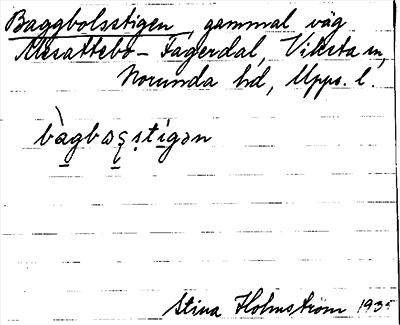 Baggbolsstigen, gammal väg
Åkerättebo - Fagerdal, Viksta sn,
Norunda hd, Upps. l.
bàgbɷʂʂtigən
Stina Holmström 1935